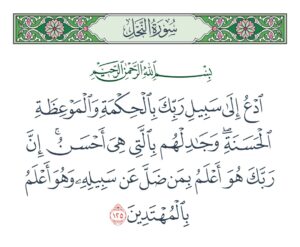 سُورَةُ النَّحْلِ
بِسْمِ اللَّهِ الرَّحْمَٰنِ الرَّحِيمِ
ادْعُ إِلَىٰ سَبِيلِ رَبِّكَ بِالْحِكْمَةِ وَالْمَوْعِظَةِ
الْحَسَنَةِ ۖ وَجَٰدِلْهُم بِالَّتِي هِيَ أَحْسَنُ ۚ إِنَّ
رَبَّكَ هُوَ أَعْلَمُ بِمَن ضَلَّ عَن سَبِيلِهِۦ وَهُوَ أَعْلَمُ
بِالْمُهْتَدِينَ ١٢٥